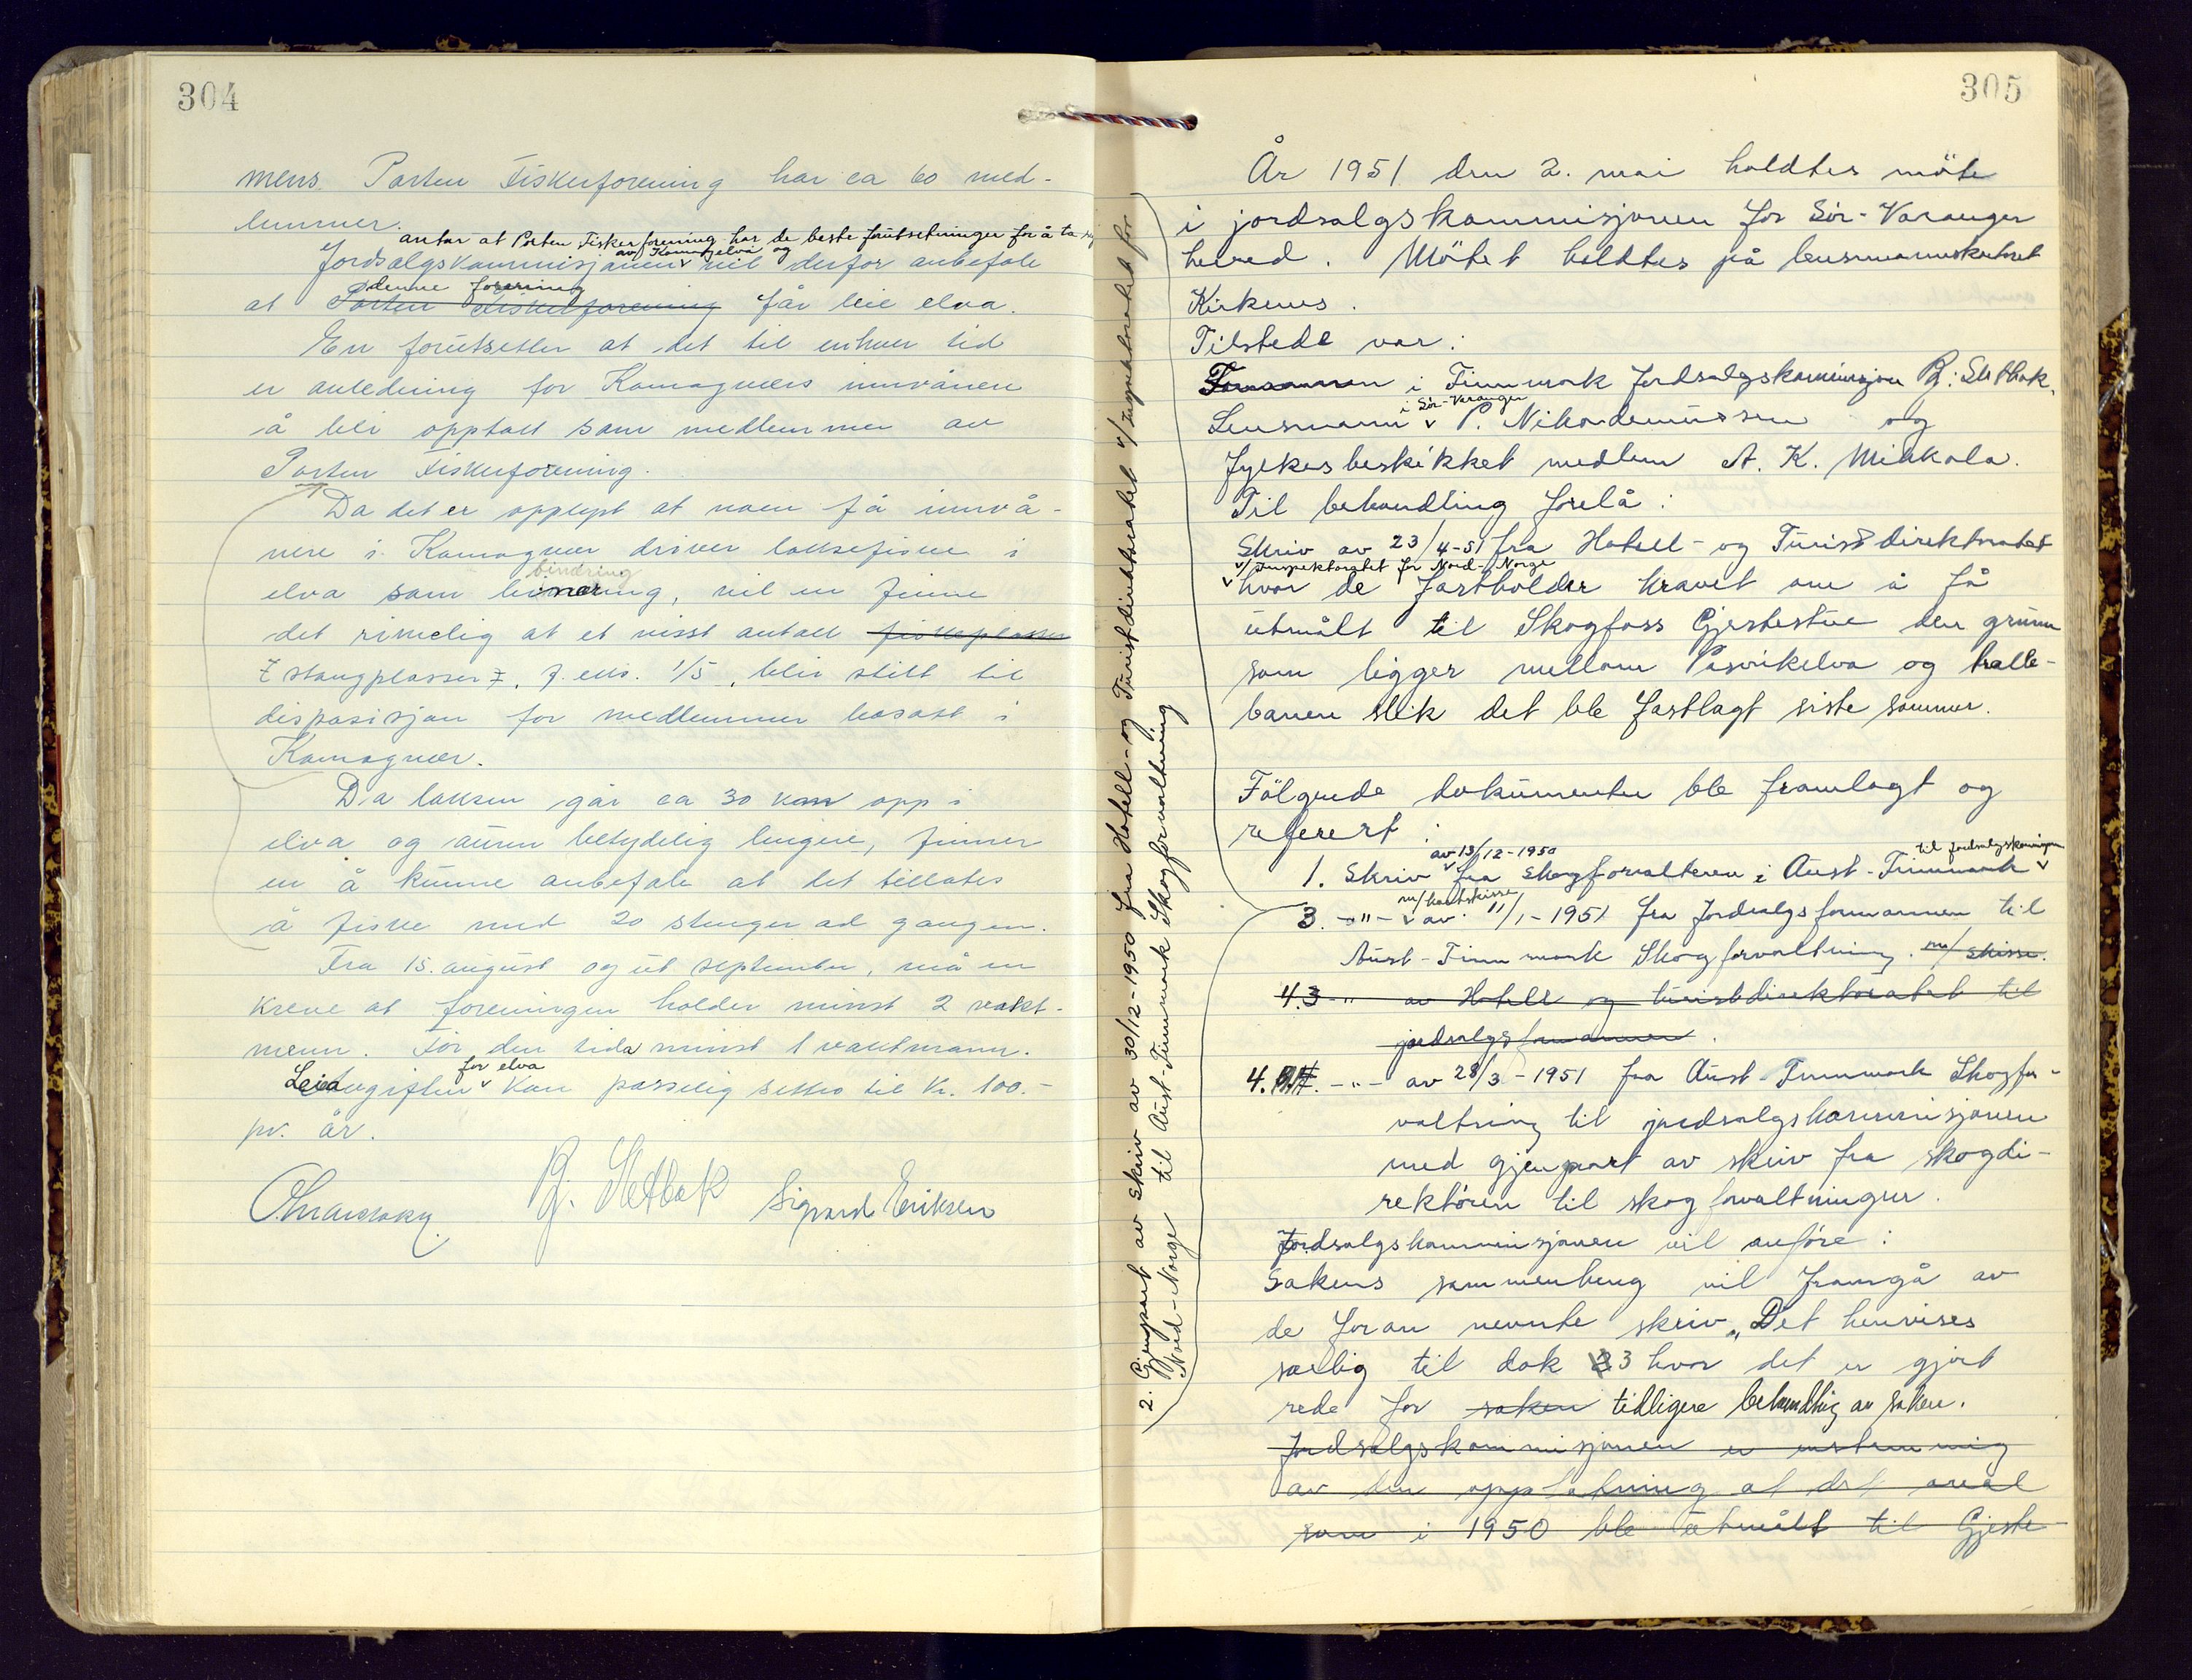 304
mens Porten Fiskerforening har ca 60 med-
lemmer.
antar at Porten Fiskerforening har de beste forutsetninger for å ta seg
av Kamagelva og
Jordsalgskommisjonen vil derfor anbefale
denne forening
at Porten Fiskerforening får leie elva.
En forutsetter at det til enhver tid
er anledning for Kamagværs innvånere
å bli opptatt som medlemmer av
Porten Fiskerforening.
Da det er opplyst at noen få innvå-
nere i Kamagvær driver laksefiske i
bindring
elva som binæring, vil en finne
det rimelig at et visst antall fiskeplasser
stangplasser, f. eks. 1/5, blir stilt til
disposisjon for medlemmer bosatt i
Kamagvær.
Da laksen går ca 30 km opp i
elva og auren betydelig lengre, finner
en å kunne anbefale at det tillates
å fiske med 20 stenger ad gangen.
Fra 15. august og ut september, må en
kreve at foreningen holder minst 2 vakt-
menn. Før den tida minst 1 vaktmann.
for elva
Leieavgiften kan passelig settes til kr. 100.-
pr. år.
Bj. Sletbak Sigvard Eriksen
305
År 1951 den 2. mai holdtes möte
i jordsalgskommisjonen for Sör-Varanger
herred. Mötet holdtes på lensmannskontoret
Kirkenes.
Tilstede var:
Formannen i Finnmark Jordsalgskommisjon Bj. Sletbak,
i Sör-Varanger
Lensmann P. Nikodemussen og
fylkesbeskikket medlem A. K. Mikkola.
Til behandling forelå:
Skriv av 23/4-51 fra Hotell- og Turistdirektoratet
v/Inspektoratet for Nord-Norge
hvor de fastholder kravet om å få
utmålt til Skogfoss Gjestestue den grunn
som ligger mellom Pasvikelva og tralle-
banen slik det ble fastlagt siste sommer.
Fölgende dokumenter ble framlagt og
referert:
av 13/12-1950
til jordsalgskommisjonen
1. Skriv fra Skogforvalteren i Aust-Finnmark
m/kartskisse
3. -"- av 11/1-1951 fra Jordsalgsformannen til
Aust-Finnmark Skogforvaltning. m/skisse.
4.3 -"- av Hotell og turistdirektoratet til
jordsalgsformannen.
4. -"- av 28/3-1951 fra Aust-Finnmark Skogfor-
valtning til jordsalgskommisjonen
med gjenpart av skriv fra skogdi-
rektören til skogforvaltningen.
Jordsalgskommisjonen vil anföre:
Sakens sammenheng vil framgå av
de foran nevnte skriv. Det henvises
særlig til dok 3 hvor det er gjort
rede for saken tidligere behandling av saken.
Jordsalgskommisjonen er enstemmig
av den oppfatning at det areal
som i 1950 ble utmålt til Gjeste-
2. Gjenpart av skriv av 30/12-1950 fra Hotell- og Turistdirektoratet v/Inspektoratet for
Nord-Norge til Aust-Finnmark Skogforvaltning